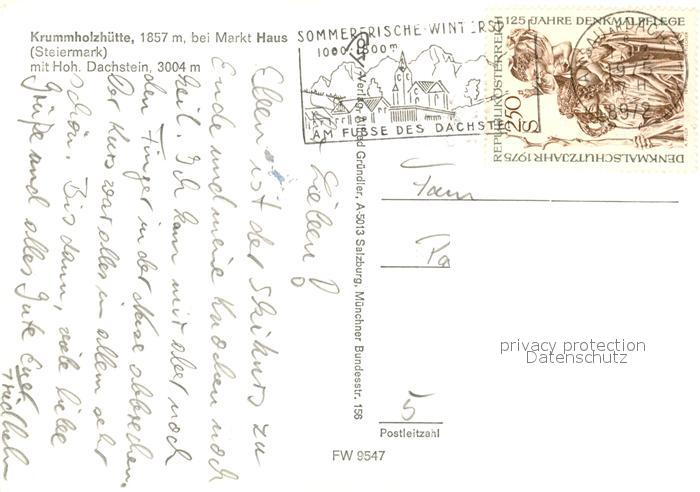 Krummholzhütte, 1857 m, bei Markt Haus
(Steiermark)
mit Hoh. Dachstein, 3004 m
SOMMERFRISCHE-WINTERS
AM FUSSE DES DACHSTE
REPUBLIK ÖSTERREICH 125 JAHRE DENKMALPFLEGE
2.50
S
DENKMALSCHUTZJAHR 1975
8972
Lieben
ist der Skikurs zu
Ende und meine Knochen noch
heil. Ich kann mir aber noch
den Finger in der Nase abbrechen.
Der Kurs war alles in allem sehr
schön. Bis dann, viele liebe
Grüße und alles Gute Euer
Friedhelm
Verlag Alfred Gründler, A-5013 Salzburg, Münchner Bundesstr. 156
Fam
5
Postleitzahl
FW 9547
privacy protection
Datenschutz